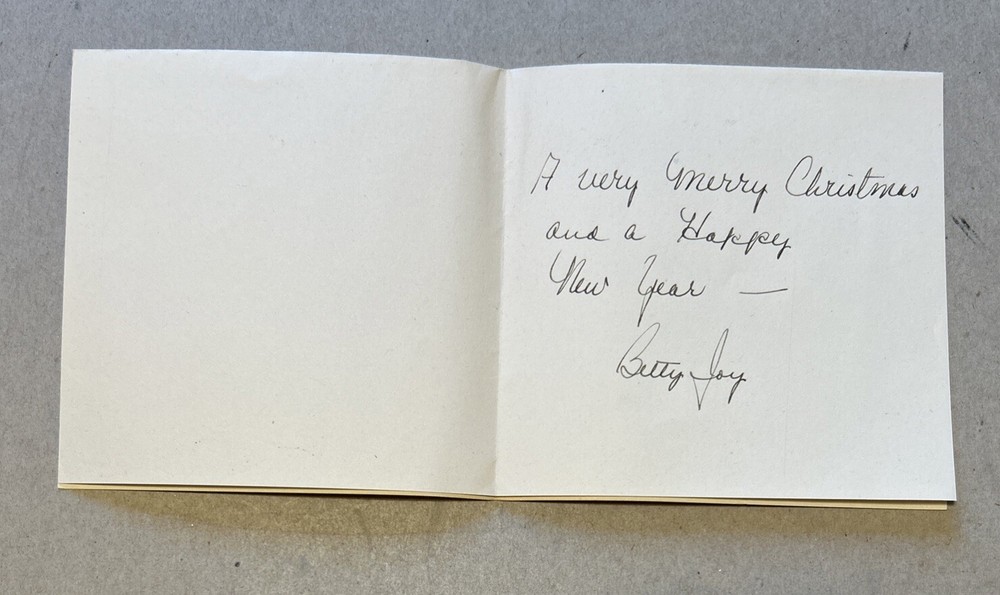 A very Merry Christmas
and a Happy
New Year —
Betty Joy